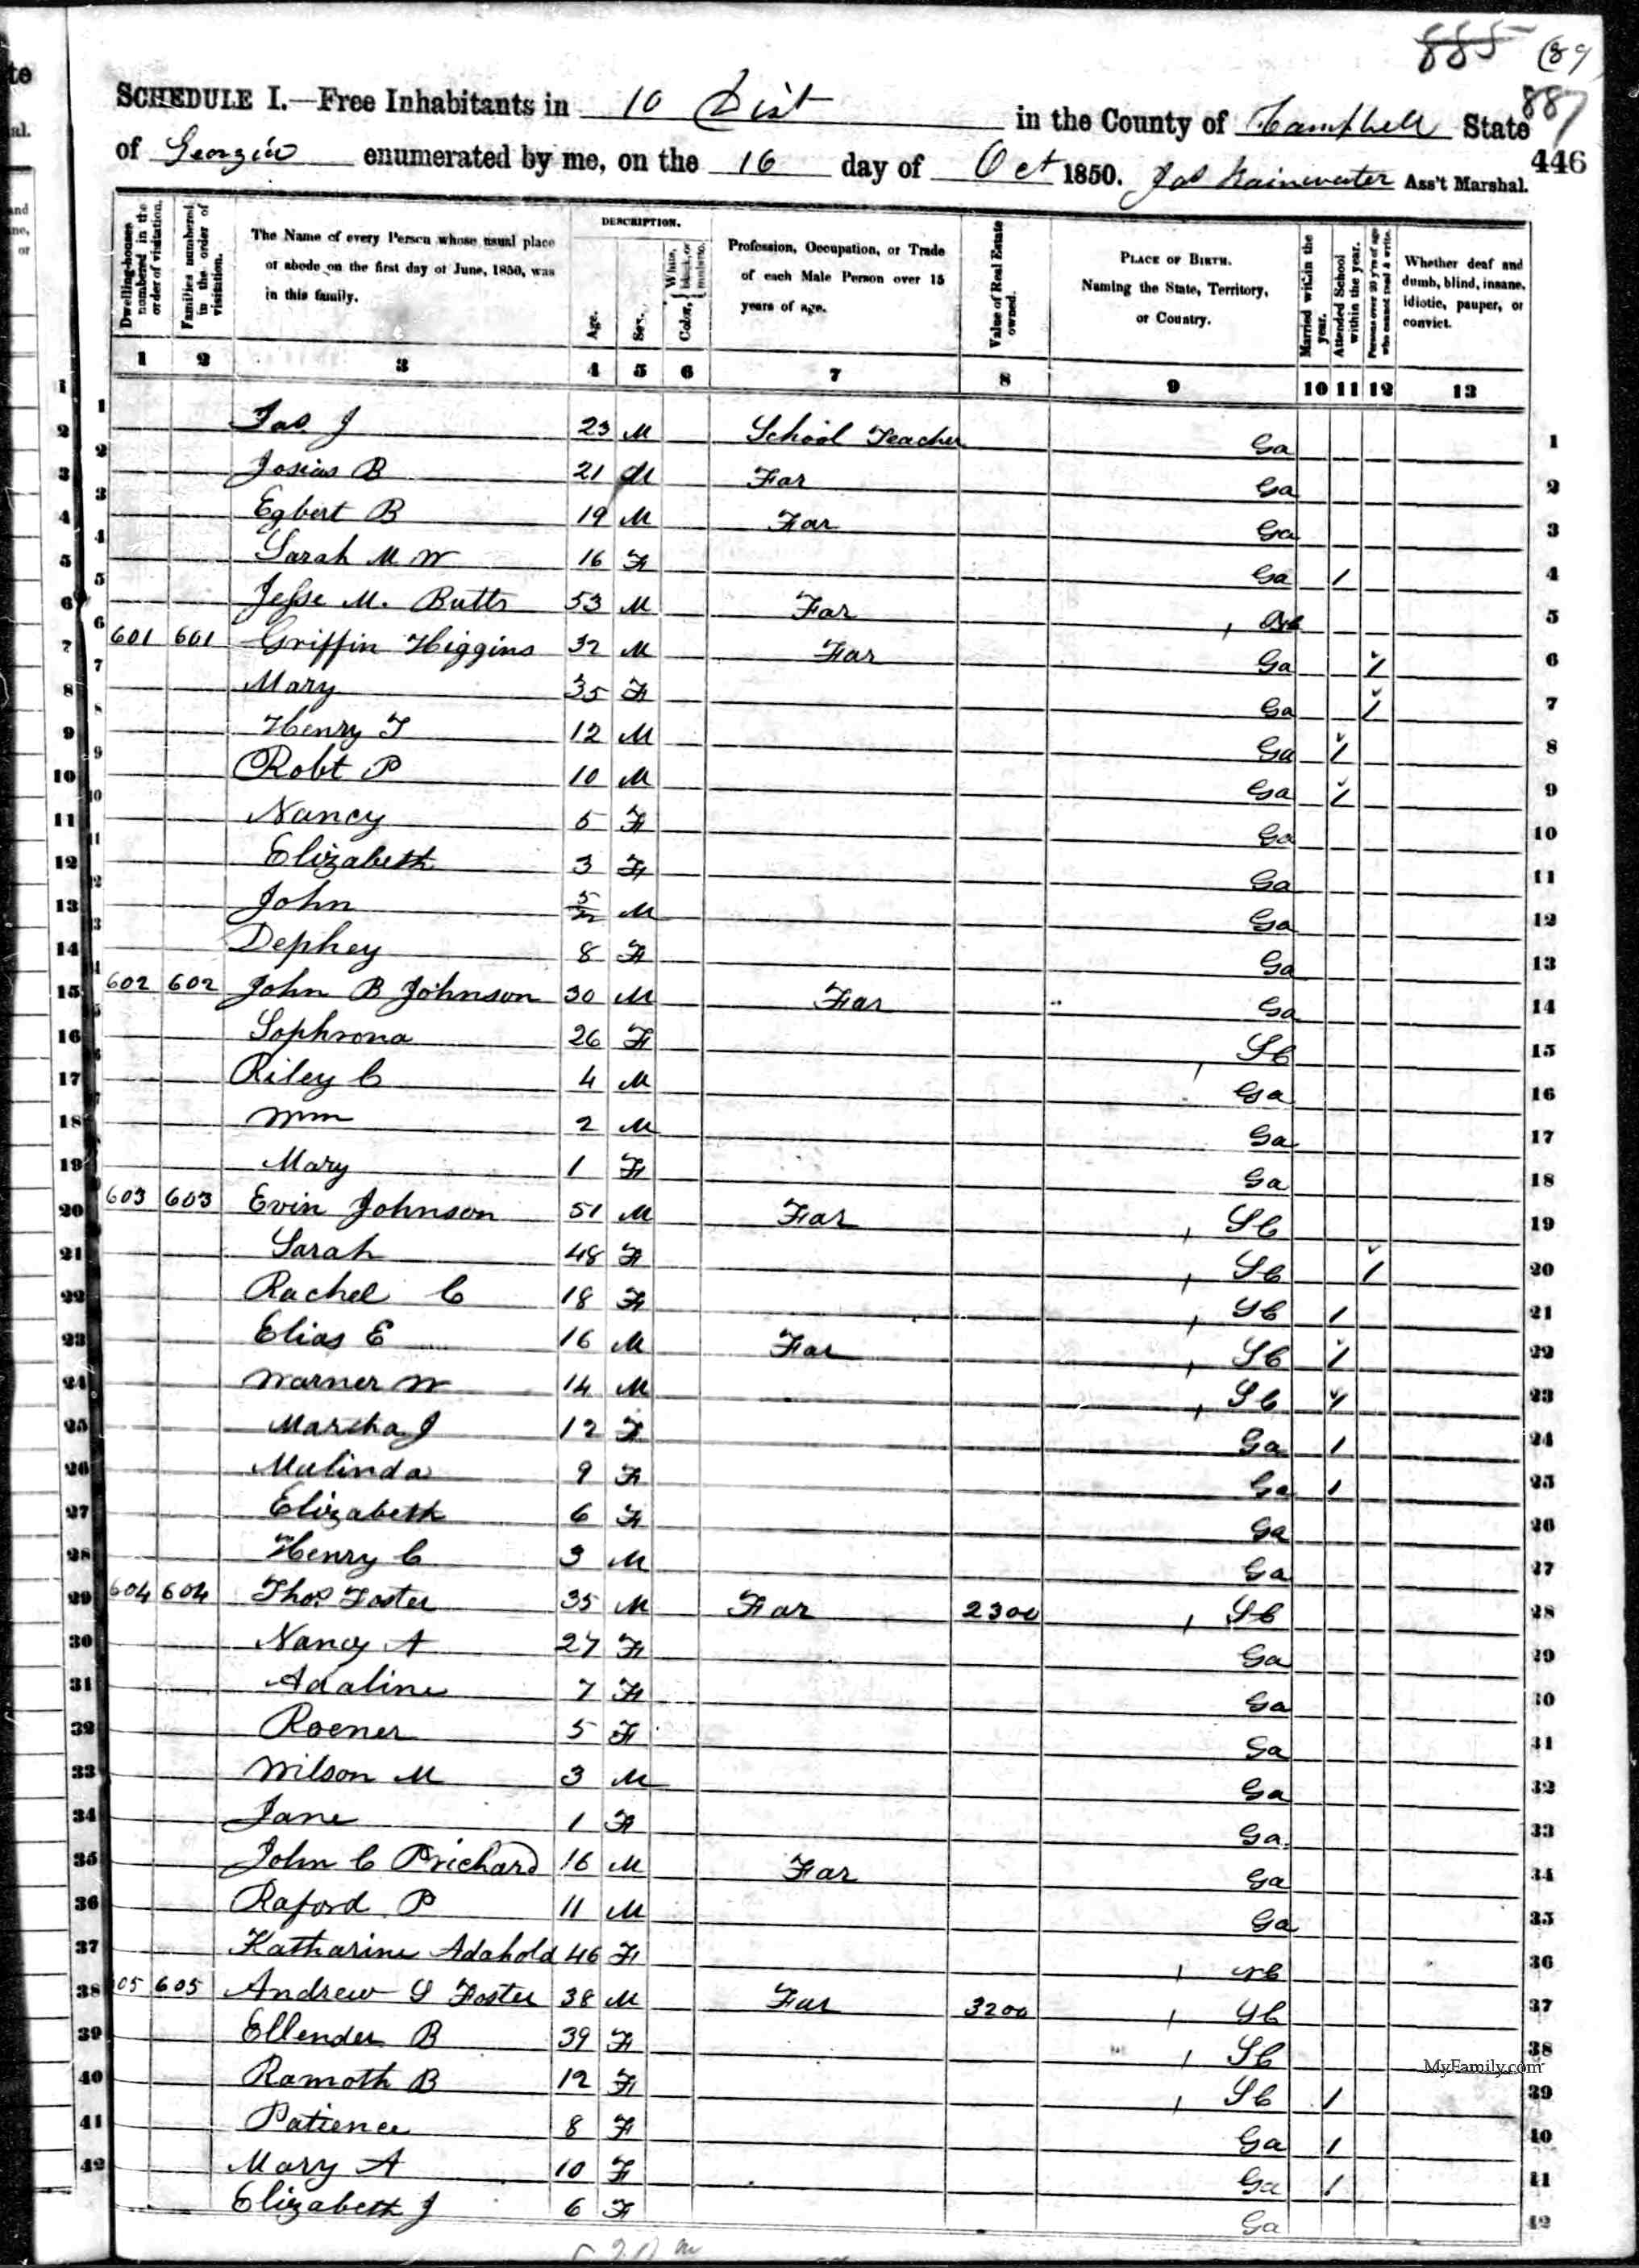 885 (89
887
SCHEDULE I.—Free Inhabitants in 10 Dist in the County of Campbell State
of Georgia enumerated by me, on the 16 day of Oct 1850. Jas Rainwater Ass't Marshal.
446
Dwelling-houses numbered in the order of visitation.
Families numbered in the order of visitation.
The Name of every Person whose usual place of abode on the first day of June, 1850, was in this family.
DESCRIPTION.
Age.
Sex.
Color, { White, black, or mulatto.
Profession, Occupation, or Trade of each Male Person over 15 years of age.
Value of Real Estate owned.
PLACE OF BIRTH. Naming the State, Territory, or Country.
Married within the year.
Attended School within the year.
Persons over 20 y'rs of age who cannot read & write.
Whether deaf and dumb, blind, insane, idiotic, pauper, or convict.
1 2 3 4 5 6 7 8 9 10 11 12 13
1 Jas. J 23 M School Teacher Ga 1
2 Josias B 21 M Far Ga 2
3 Egbert B 19 M Far Ga 3
4 Sarah M W 16 F Ga 1 4
5 Jesse M. Butts 53 M Far 5
6 601 601 Griffin Higgins 32 M Far Ga 1 6
7 Mary 35 F Ga 1 7
8 Henry T 12 M Ga 1 8
9 Robt P 10 M Ga 1 9
10 Nancy 5 F Ga 10
11 Elizabeth 3 F Ga 11
12 John 5/12 M Ga 12
13 Dephey 8 F Ga 13
602 602 John B Johnson 30 M Far Ga 14
Sophrona 26 F SC 15
Riley C 4 M Ga 16
Wm 2 M Ga 17
Mary 1 F Ga 18
603 603 Evin Johnson 51 M Far SC 19
Sarah 48 F SC 1 20
Rachel C 18 F SC 1 21
Elias E 16 M Far SC 1 22
Warner W 14 M SC 1 23
Martha J 12 F Ga 1 24
Malinda 9 F Ga 1 25
Elizabeth 6 F Ga 26
Henry C 3 M Ga 27
604 604 Thos Foster 35 M Far 2300 SC 28
Nancy A 27 F Ga 29
Adaline 7 F Ga 30
Roener 5 F Ga 31
Wilson M 3 M Ga 32
Jane 1 F Ga 33
John C Prichard 16 M Far Ga 34
Raford P 11 M Ga 35
Katharine Adahold 46 F NC 36
05 605 Andrew S Foster 38 M Far 3200 SC 37
Ellender B 39 F SC 38
MyFamily.com
Ramoth B 12 F SC 1 39
Patience 8 F Ga 1 40
Mary A 10 F Ga 1 41
Elizabeth J 6 F Ga 42